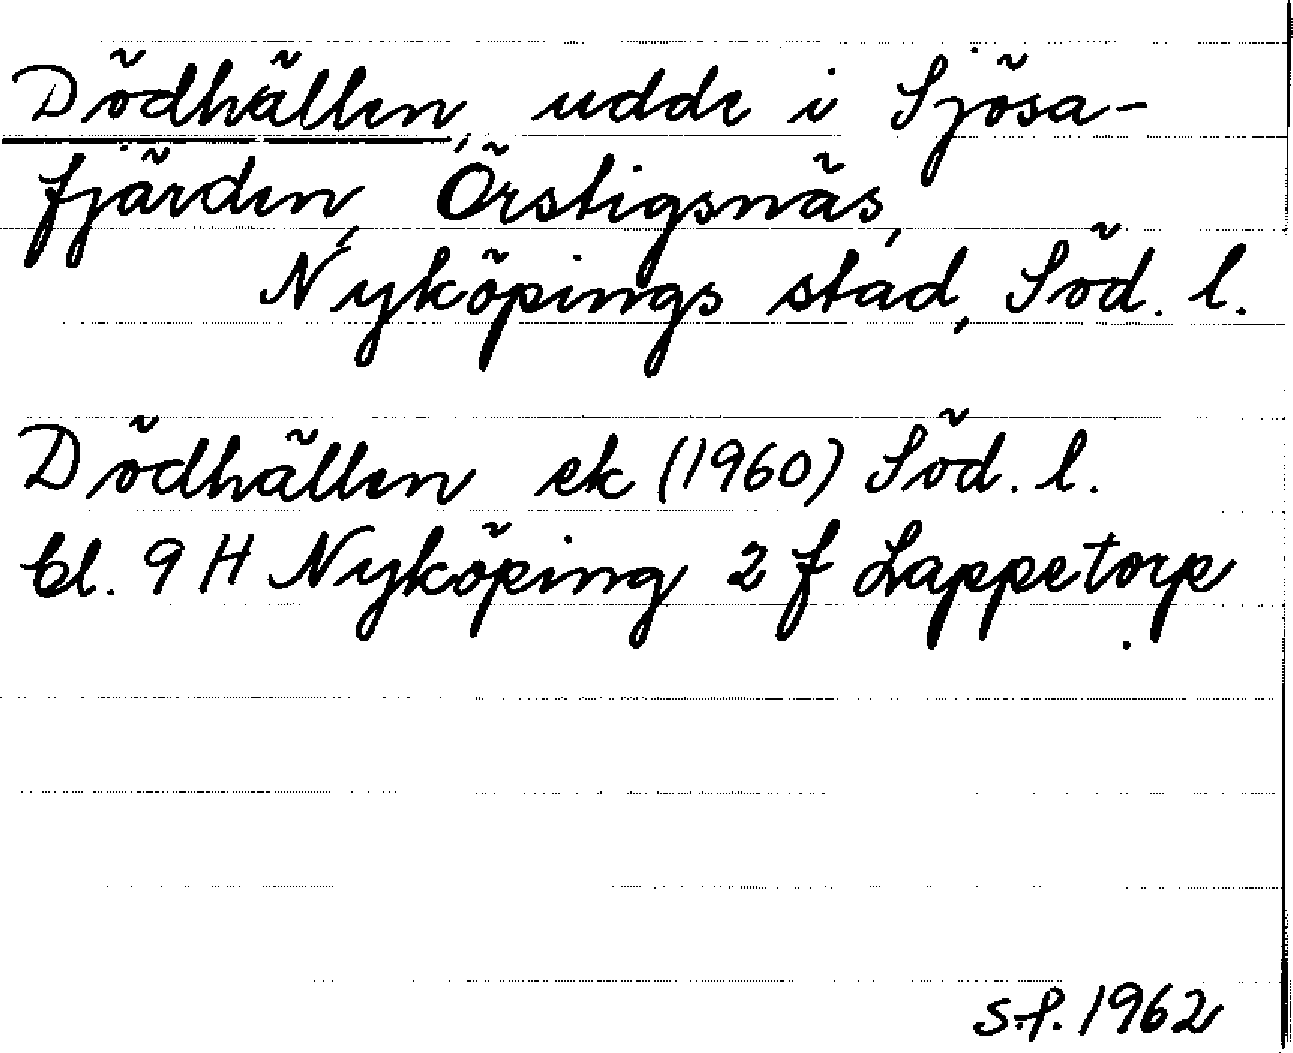 Dödhällen, udde i Sjösa-
fjärden, Örstigsnäs,
Nyköpings stad, Söd. l.
Dödhällen ek (1960) Söd. l.
bl. 9 H Nyköping 2 f Lappetorp
S.F. 1962